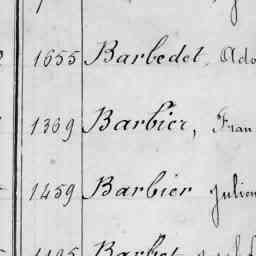 1655 Barbedet, Ado
1369 Barbier, Fran
1459 Barbier Julien
1495 Barbet